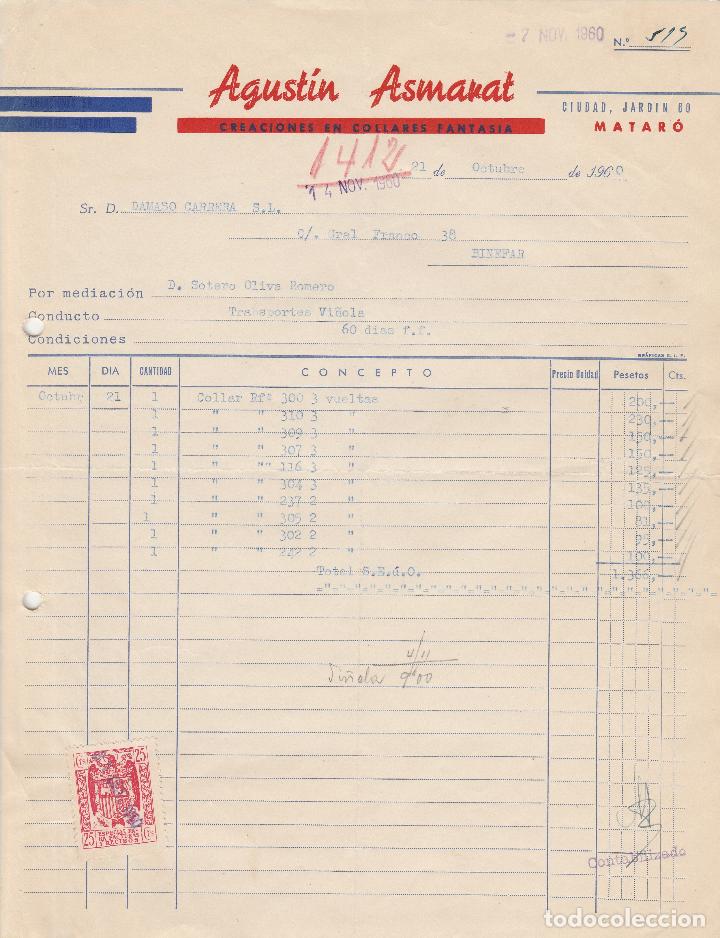 - 7 NOV. 1960
N.º 599
Agustín Asmarat
CREACIONES EN COLLARES FANTASIA
CIUDAD, JARDIN 60
MATARÓ
1412
14 NOV. 1960
21 de Octubre de 1960
Sr. D. DAMASO CARRERA S.L.
c/. Gral Franco 38
BINEFAR
Por mediación D. Sotero Oliva Romero
Conducto Transportes Viñola
Condiciones 60 dias f.f.
GRÁFICAS
MES DIA CANTIDAD CONCEPTO Precio Unidad Pesetas Cts.
Octubr 21 1 Collar Rfª 300 3 vueltas 200,—
1 " " 310 3 " 230,—
1 " " 309 3 " 150,—
1 " " 307 3 " 150,—
1 " "" 116 3 " 125,—
1 " " 304 3 " 135,—
1 " " 237 2 " 100,—
1 " " 305 2 " 81,—
1 " " 302 2 " 95,—
1 " " 242 2 " 100,—
Total S.E.ú.O. 1.366,—
="="="="="="="="="="="="="="="="="="="="="="="="="="="=
4/11
Viñola 9'00
25 CTS. 25 CTS.
ESPECIAL PARA FACTURAS Y RECIBOS
Contabilizado
todocoleccion.net